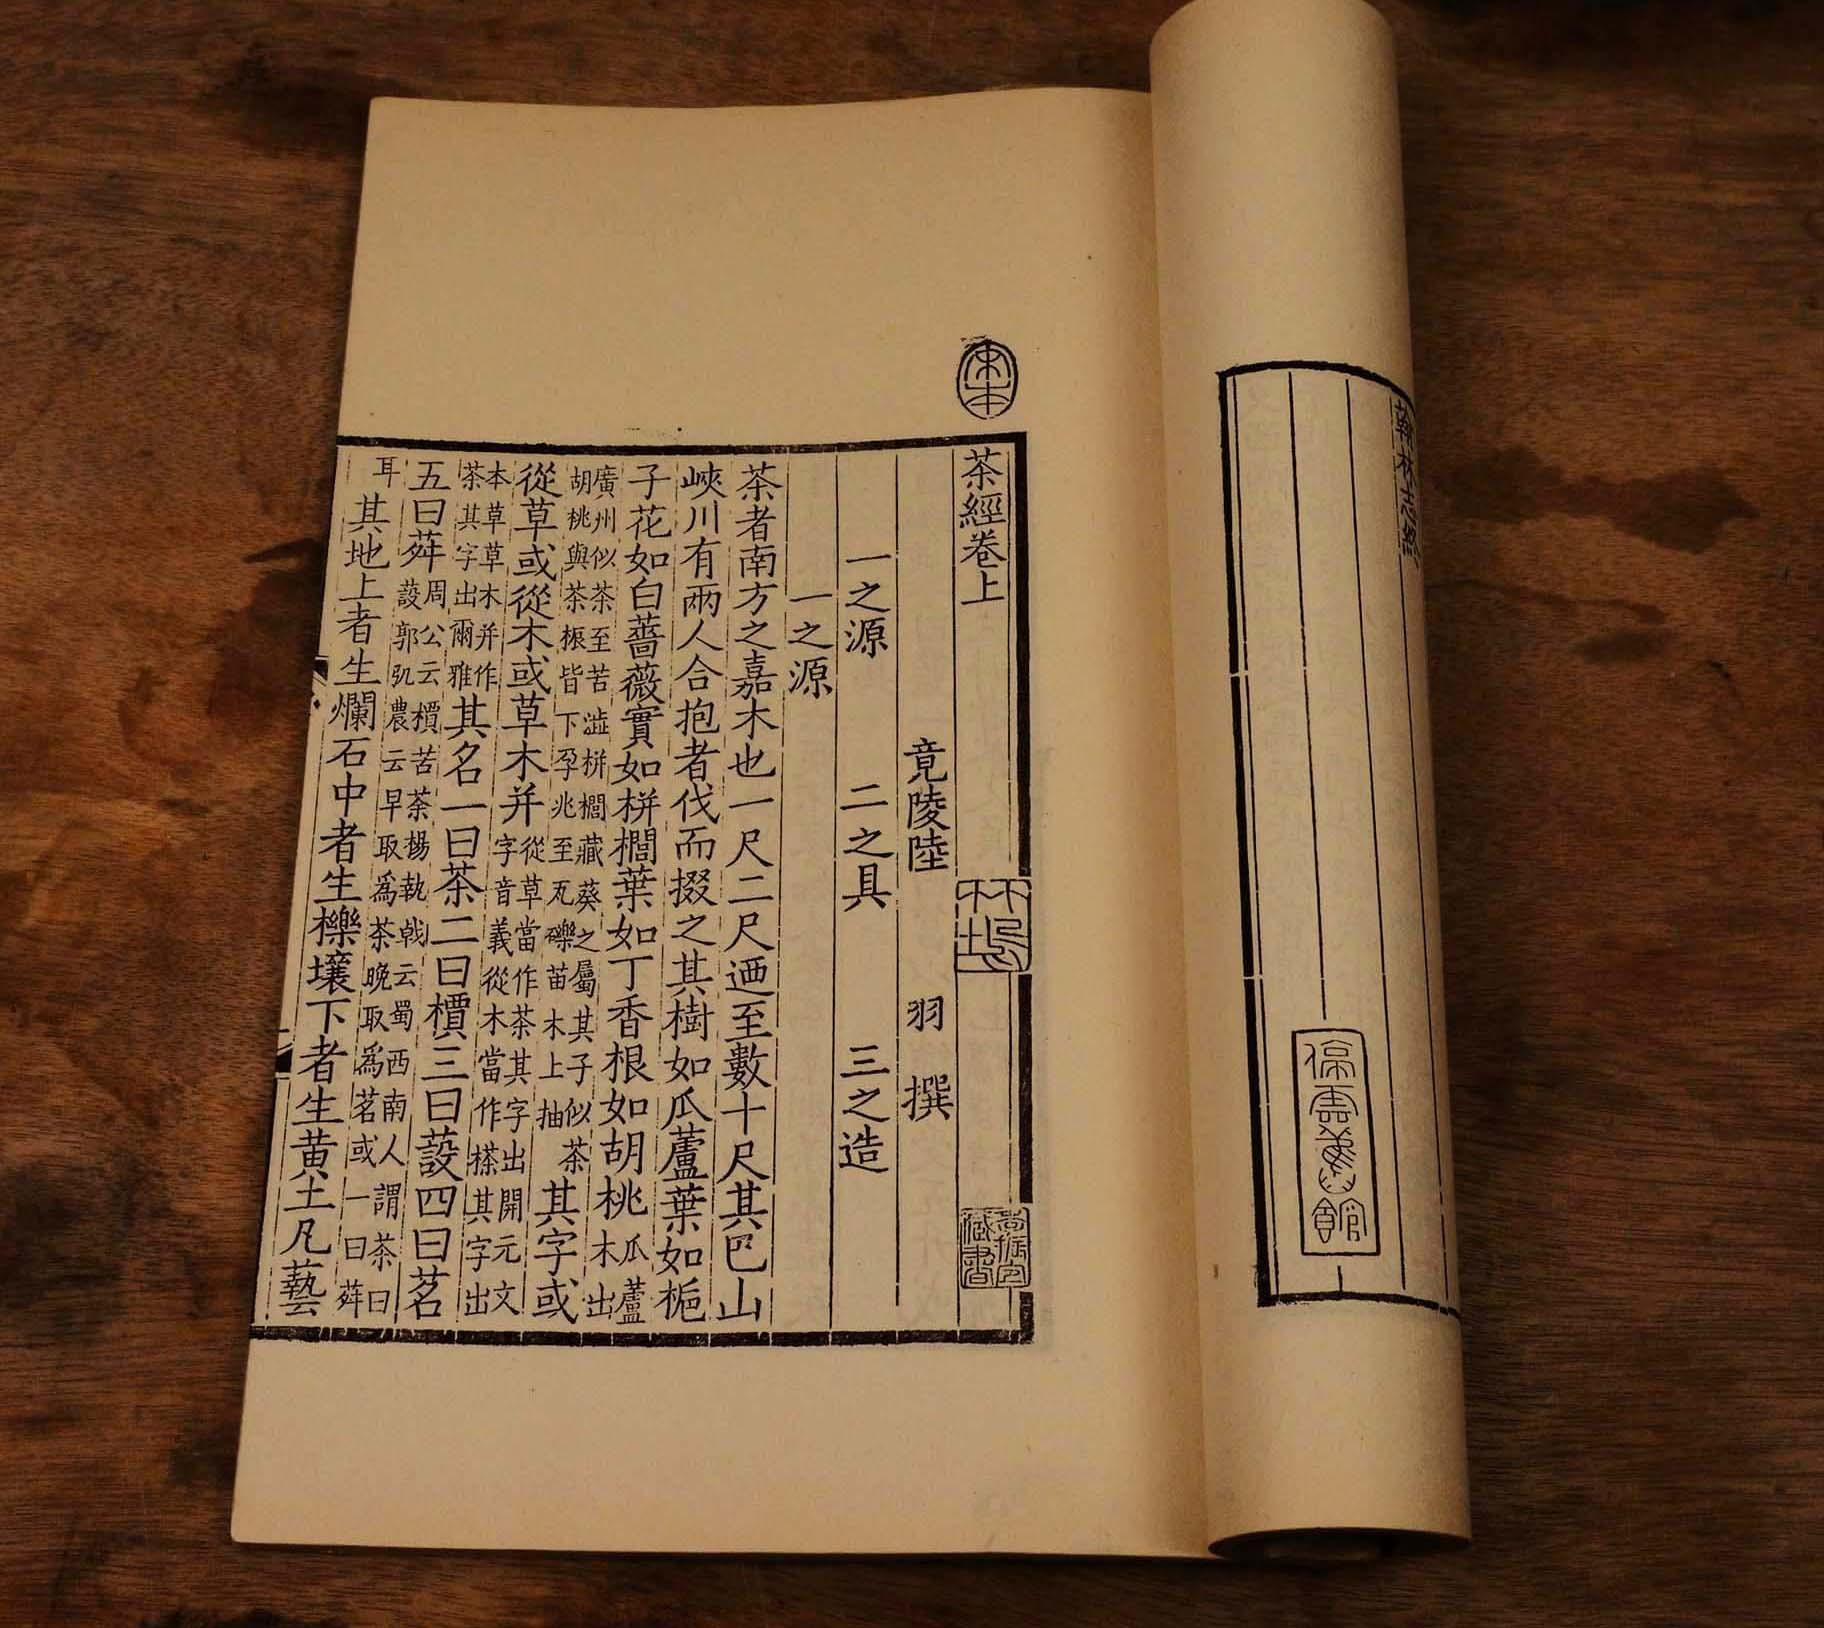 翰林志終
宋本
茶經卷上
竟陵陸 羽 撰
一之源 二之具 三之造
一之源
茶者南方之嘉木也一尺二尺迺至數十尺其巴山
峽川有兩人合抱者伐而掇之其樹如瓜蘆葉如梔
子花如白薔薇實如栟櫚葉如丁香根如胡桃瓜蘆木出
廣州似茶至苦澁栟櫚藏葵之屬其子似茶胡桃與茶棖皆下孕兆至瓦礫苗木上抽其字或
從草或從木或草木并從草當作茶其字出開元文字音義從木當作搽其字出
本草草木并作茶其字出爾雅其名一曰茶二曰檟三曰蔎四曰茗
五曰荈周公云檟苦荼楊執戟云蜀西南人謂茶曰蔎郭弘農云早取爲茶晚取爲茗或一曰荈
耳其地上者生爛石中者生櫟壤下者生黄土凡藝